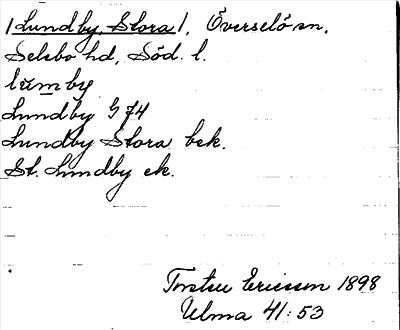 /Lundby, Stora/, Överselö sn,
Selebo hd, Söd. l.
lŭm by
Lundby G 74
Lundby Stora bek.
St. Lundby ek.
Torsten Ericsson 1898
Ulma 41:53